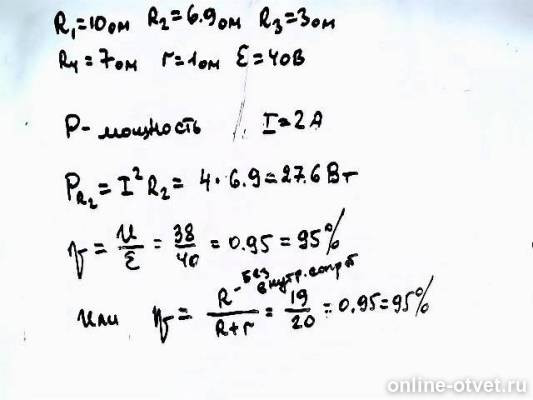 R₁=10ом R₂=6.9ом R₃=3ом
R₄=7ом r=1ом Ɛ=40В
P- мощность I=2A
P_R₂=I²R₂= 4·6.9=27.6Вт
η=U/Ɛ=38/40=0.95=95%
или η=R/(R+r)=19/20=0.95=95%
-без внутр. сопрот
online-otvet.ru